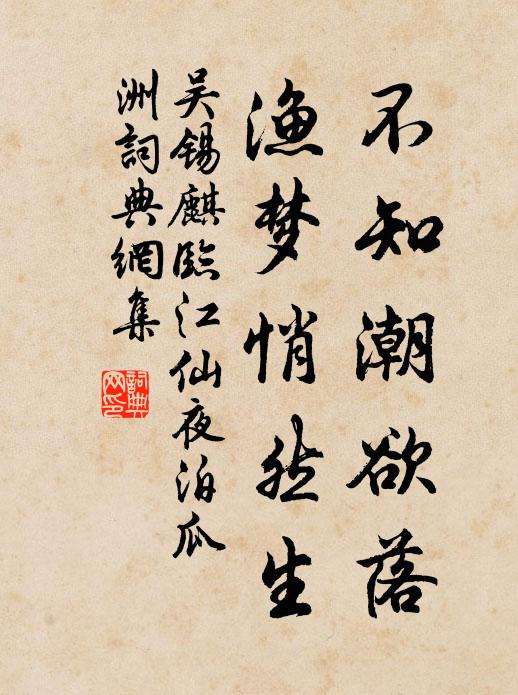 不知潮欲落
渔梦悄然生
吴锡麒臨江仙夜泊瓜
洲詞典網集
詞典
网印